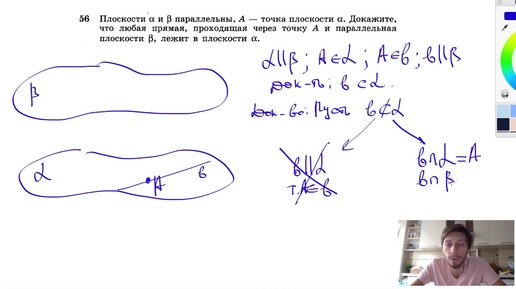 56 Плоскости α и β параллельны, A — точка плоскости α. Докажите,
что любая прямая, проходящая через точку A и параллельная
плоскости β, лежит в плоскости α.
α||β ; A∈α ; A∈в ; в||β
Док-ть: в⊂α.
Док-во: Пусть в⊄α
β
α
A
в
в||α
т.A∈в
в∩α=A
в∩β